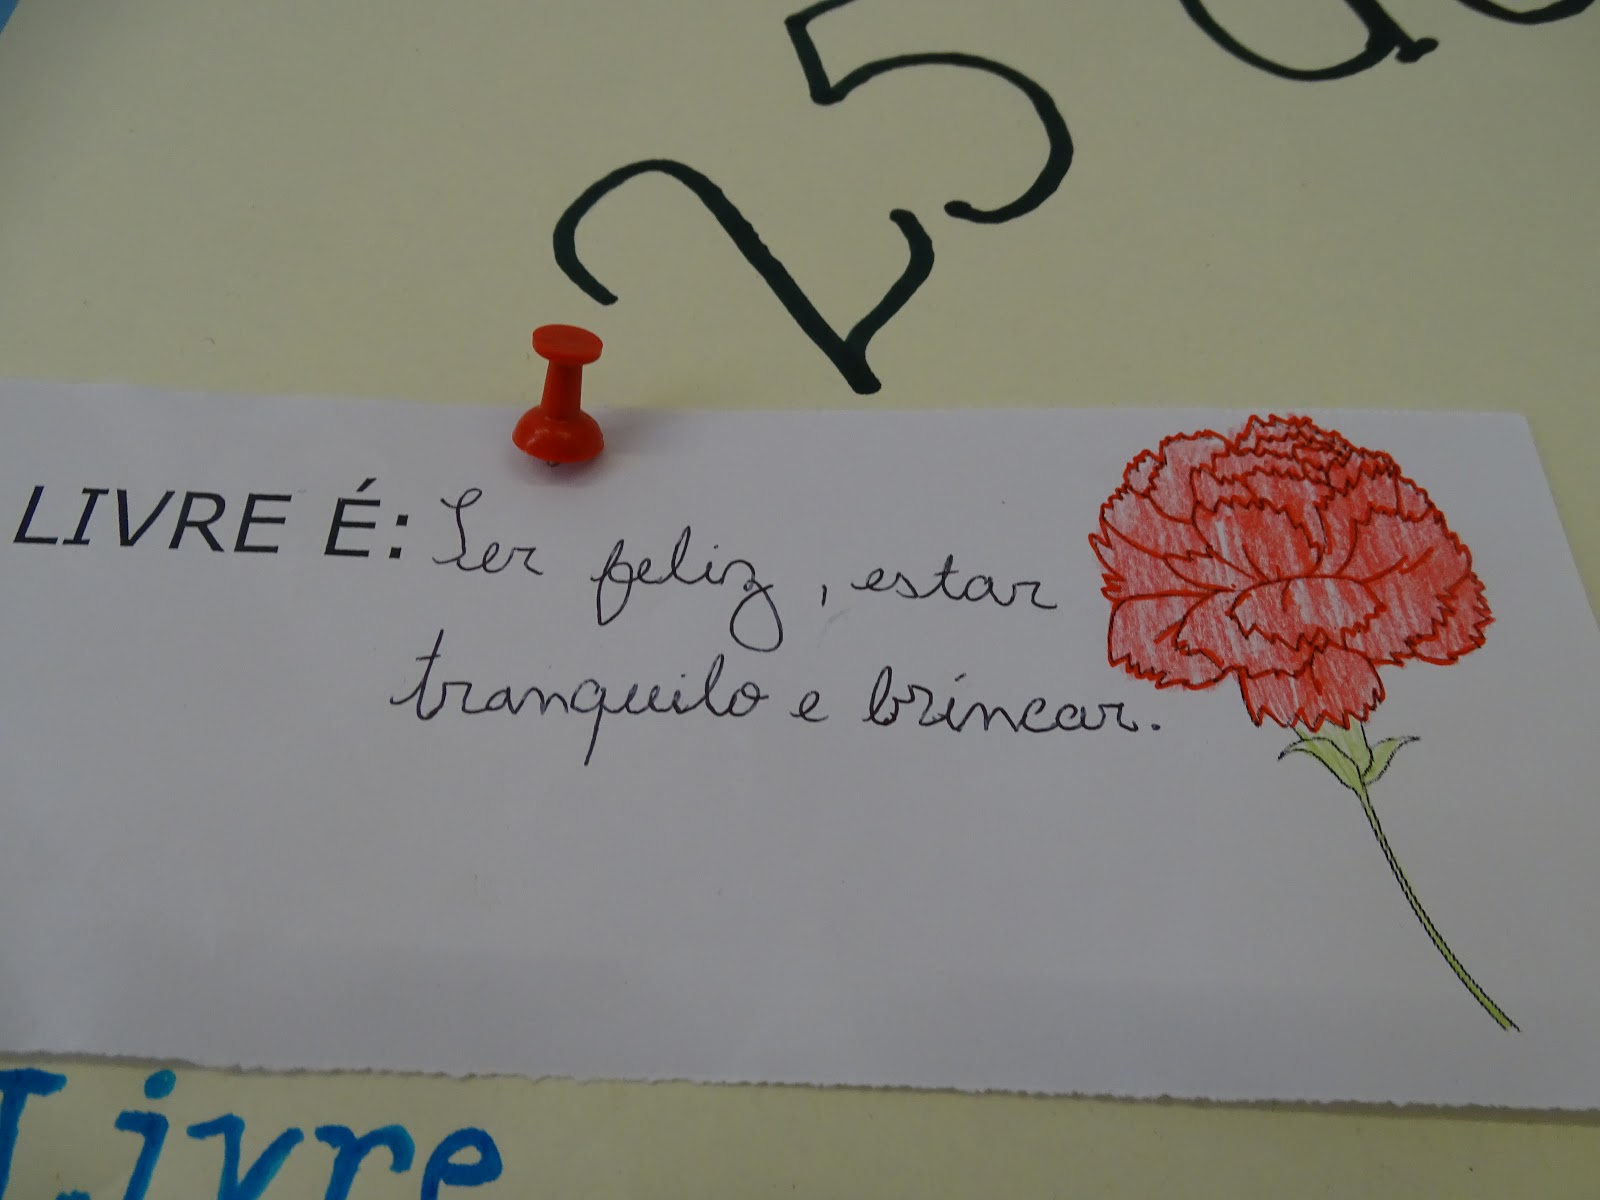 25 de
LIVRE É: Ser feliz, estar
tranquilo e brincar.
Livre